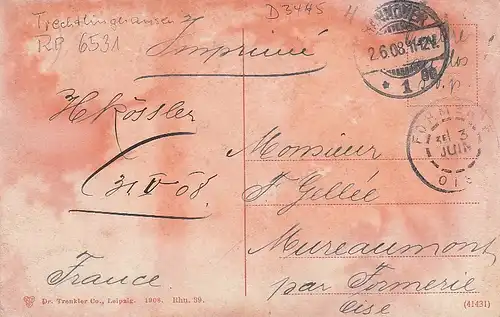 Trechtlinghausen
RP 6531
D3445 H
Imprimé
HANNOVER
2.6.08.11-12V.
* 1 *
H Kössler
31. V 08.
FORMERIE
3
JUIN
OISE
Monsieur
F. Gellée
Mureaumont
par Formerie
Oise
France.
Dr. Trenkler Co., Leipzig. 1906. Rhn. 39.
(41431)